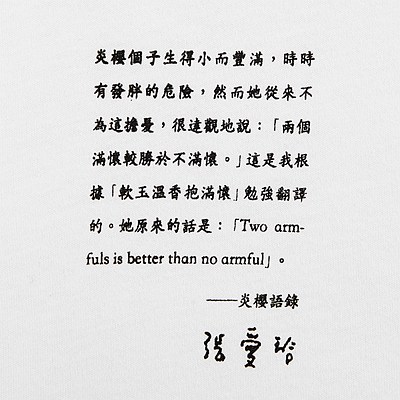 炎櫻個子生得小而豐滿，時時
有發胖的危險，然而她從來不
為這擔憂，很達觀地說：「兩個
滿懷較勝於不滿懷。」這是我根
據「軟玉溫香抱滿懷」勉強翻譯
的。她原來的話是：「Two arm-
fuls is better than no armful」。
——炎櫻語錄
張愛玲